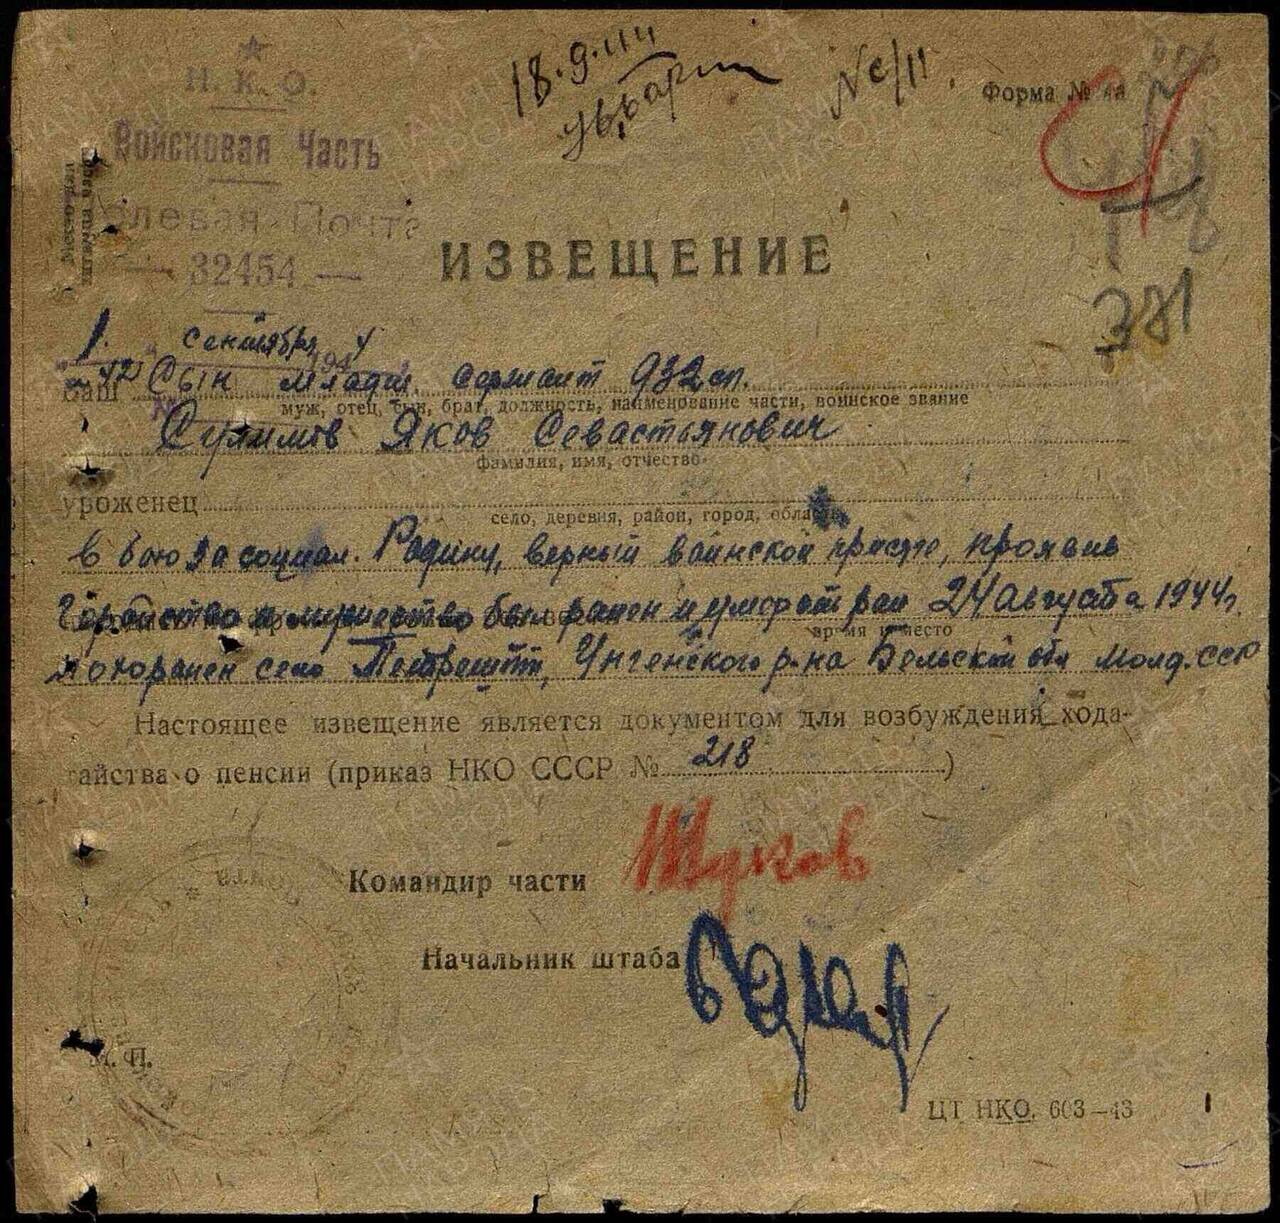 18.9.44
Н. К. О.
Форма № 4а
Войсковая Часть
Полевая Почта
— 32454 —
ИЗВЕЩЕНИЕ
381
1. сентября 1944
Ваш Сын младш. сержант 932 сп.
муж, отец, сын, брат, должность, наименование части, воинское звание
Сулимов Яков Севастьянович
фамилия, имя, отчество
уроженец
село, деревня, район, город, область
в бою за социал. Родину, верный воинской присяге, проявив
геройство и мужество был ранен и умер от ран 24 августа 1944 г.
время и место
похоронен село Петрешты, Унгенского р-на Бельской обл Молд.ССР
Настоящее извещение является документом для возбуждения хода-
тайства о пенсии (приказ НКО СССР № 218)
Командир части Жуков
Начальник штаба
М. П.
ЦТ НКО. 603—43